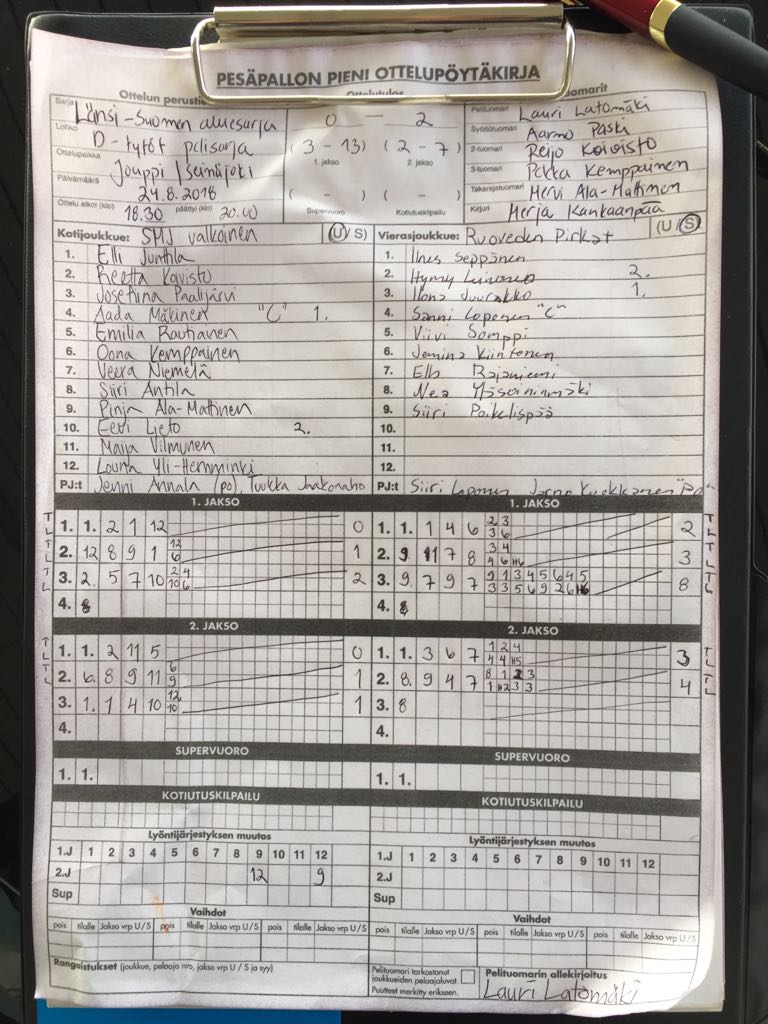 PESÄPALLON PIENI OTTELUPÖYTÄKIRJA
Ottelun
Sarja Länsi-Suomen aluesarja
Lohko D-tytöt pelisarja
Ottelupaikka Jouppi Seinäjoki
Päivämäärä 24.8.2018
Ottelu alkoi (klo) 18.30 päättyi (klo) 20.00
0 - 2
(3-13) (2-7)
1. jakso 2. jakso
( - ) ( - )
Supervuoro Kotiutuskilpailu
Pelituomari Lauri Latomäki
Syöttötuomari Aarmo Paski
2-tuomari Reijo Koivisto
3-tuomari Pekka Kemppainen
Takarajatuomari Mervi Ala-Mattinen
Kirjuri Merja Kankaanpää
Kotijoukkue: SMJ valkoinen (U/S)
1. Elli Junttila
2. Reetta Koivisto
3. Josefiina Paalijärvi
4. Aada Mäkinen "C" 1.
5. Emilia Rautiainen
6. Oona Kemppainen
7. Veera Niemelä
8. Siiri Antila
9. Pinja Ala-Mattinen
10. Eevi Lieto 2.
11. Maija Vilmunen
12. Louna Yli-Hemminki
PJ:t Jenni Annala (po), Tuukka Jaakonaho
Vierasjoukkue: Ruoveden Pirkat (U/S)
1. Ines Seppänen
2. Hymmy Leinonen 2.
3. Ilona Juurakko 1.
4. Sanni Loponen "C"
5. Viivi Somppi
6. Jemina Kiintonen
7. Ella Rajaniemi
8. Nea Yläsoininmäki
9. Siiri Poikelispää
10.
11.
12.
PJ:t Siiri Loponen Jarno Kuokkanen
1. JAKSO
1. 1. 2 1 12 0
2. 12 8 9 1 12 6 1
3. 2. 5 7 10 2 4 10 6 2
4. 8
1. JAKSO
1. 1. 1 4 6 2 3 3 6 2
2. 9 11 7 8 3 4 4 6 H6 3
3. 9. 7 9 7 9 1 3 4 5 6 4 5 3 3 5 6 9 2 6 H6 8
4. 8
2. JAKSO
1. 1. 2 11 5 0
2. 6. 8 9 11 6 9 1
3. 1. 1 4 10 12 10 1
4.
2. JAKSO
1. 1. 3 6 7 1 2 4 4 4 H5 3
2. 8. 9 4 7 8 1 2 3 1 H2 3 3 4
3. 8
4.
SUPERVUORO
1. 1.
SUPERVUORO
1. 1.
KOTIUTUSKILPAILU
KOTIUTUSKILPAILU
Lyöntijärjestyksen muutos
1.J 1 2 3 4 5 6 7 8 9 10 11 12
2.J 12 9
Sup
Lyöntijärjestyksen muutos
1.J 1 2 3 4 5 6 7 8 9 10 11 12
2.J
Sup
Vaihdot
pois tilalle Jakso vrp U/S pois tilalle Jakso vrp U/S pois tilalle Jakso vrp U/S
Vaihdot
pois tilalle Jakso vrp U/S pois tilalle Jakso vrp U/S pois tilalle Jakso vrp U/S
Rangaistukset (joukkue, pelaaja nro, jakso vrp U / S ja syy)
Pelituomari tarkastanut
joukkueiden pelaajaluvat.
Puutteet merkitty erikseen.
Pelituomarin allekirjoitus
Lauri Latomäki